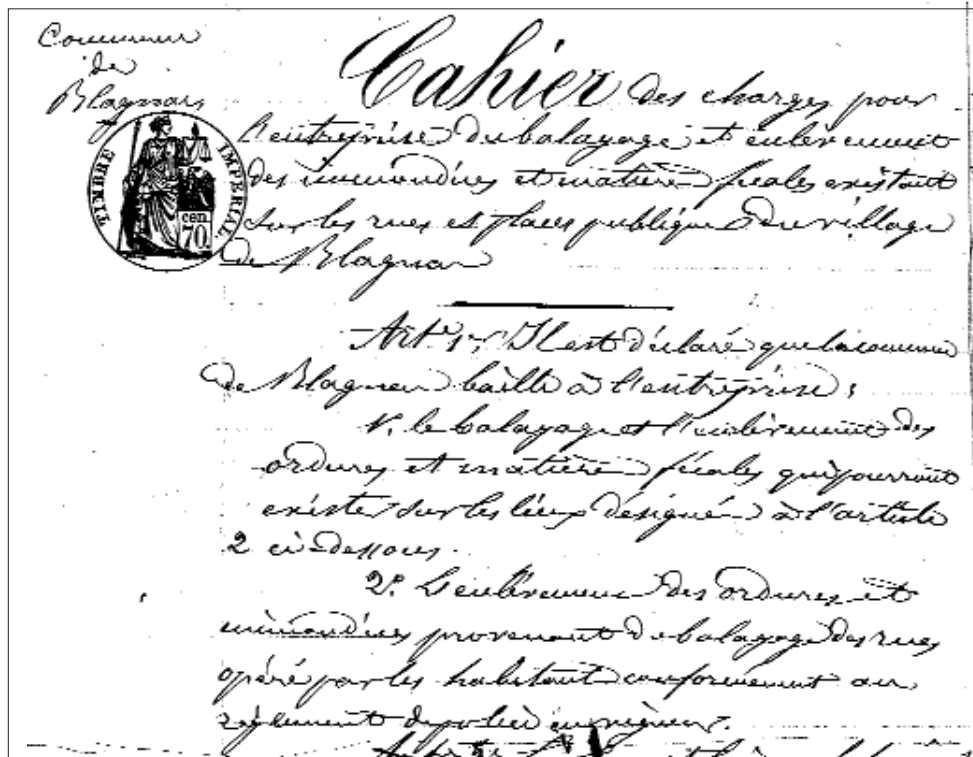 Commune
de
Blagnac
TIMBRE IMPERIAL
cen
70
Cahier des charges pour
l'entreprise du balayage et enlèvement
des immondices et matière fécales existant
sur les rues et places publiques du village
de Blagnac
Art. 1er Il est déclaré que la commune
de Blagnac baille à l'entreprise :
1. le balayage et l'enlèvement des
ordures et matière fécales qui pourront
exister sur les lieux désigné à l'article
2 ci-dessous.
2°. L'enlèvement des ordures et
immondices provenant du balayage des rues
opéré par les habitant conformément au
règlement de police en vigueur.